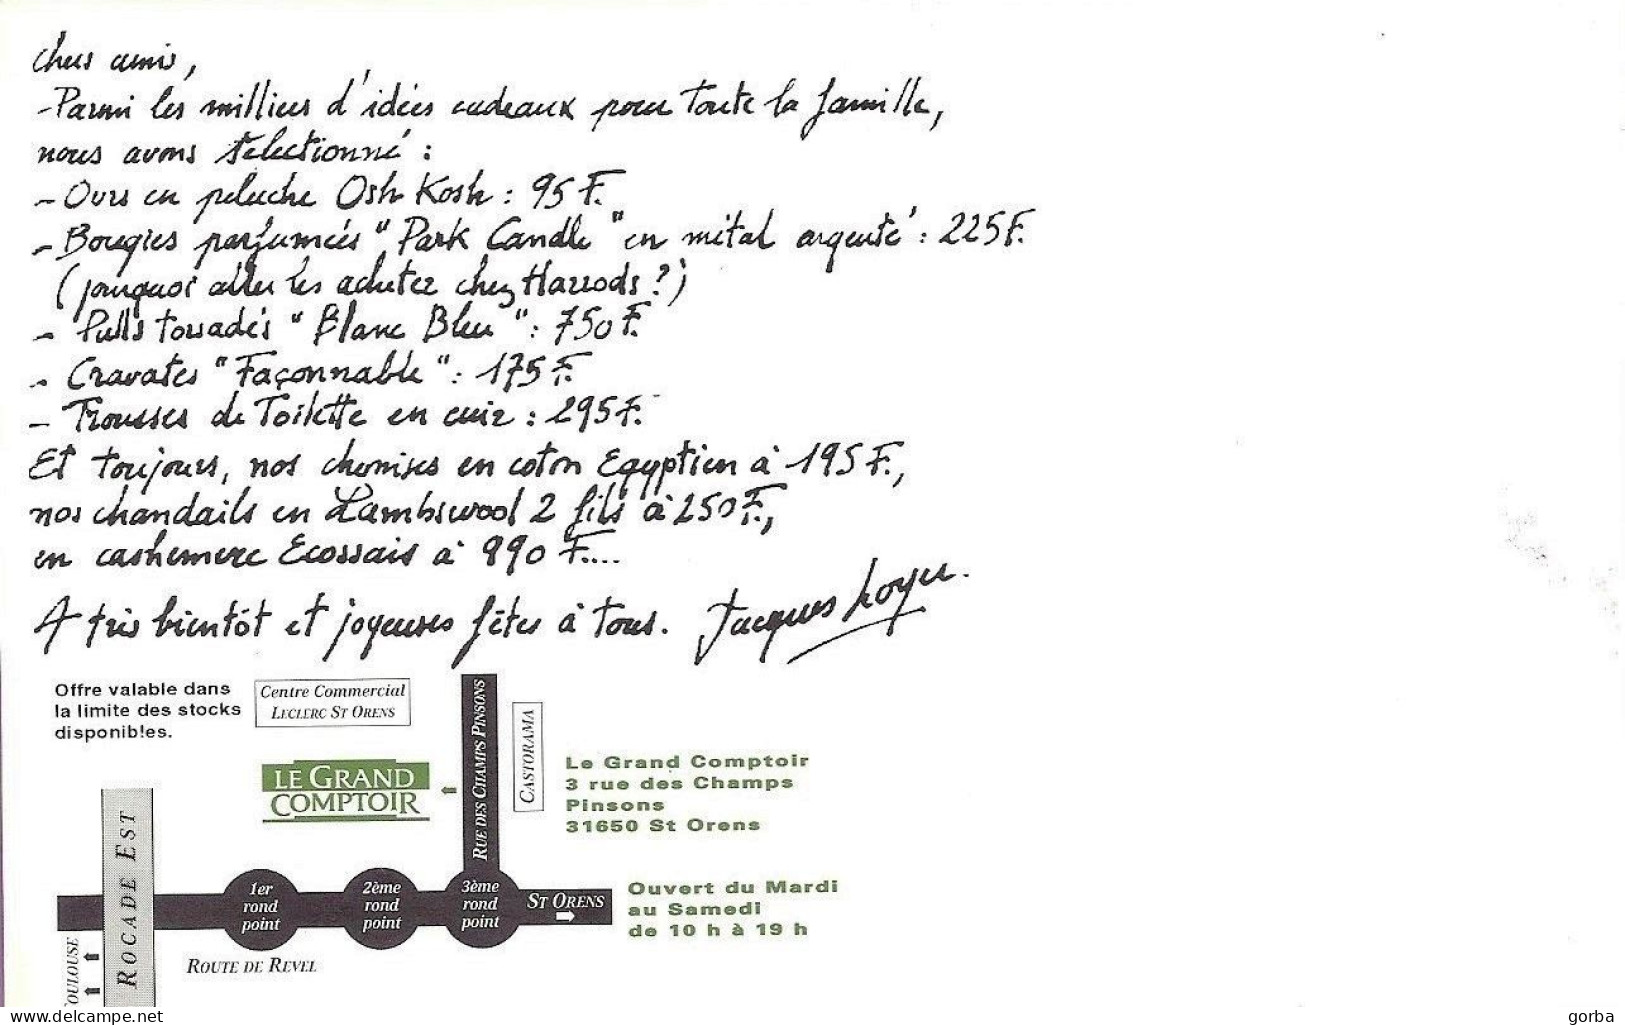 Chers amis,
-Parmi les milliers d'idées cadeaux pour toute la famille,
nous avons sélectionné :
- Ours en peluche Osh Kosh : 95 F.
- Bougies parfumées "Park Candle" en métal argenté : 225 F.
(pourquoi aller les acheter chez Harrods ?)
- Pulls torsadés "Blanc Bleu" : 750 F.
- Cravates "Façonnable" : 175 F.
- Trousses de Toilette en cuir : 295 F.
Et toujours, nos chemises en coton Egyptien à 195 F.,
nos chandails en Lambswool 2 fils à 250 F.,
en cashemere Ecossais à 990 F....
A très bientôt et joyeuses fêtes à tous. Jacques Loyer.
Offre valable dans
la limite des stocks
disponibles.
Centre Commercial
LECLERC ST ORENS
RUE DES CHAMPS PINSONS
CASTORAMA
LE GRAND
COMPTOIR
Le Grand Comptoir
3 rue des Champs
Pinsons
31650 St Orens
ROCADE EST
1er
rond
point
2ème
rond
point
3ème
rond
point
ST ORENS
Ouvert du Mardi
au Samedi
de 10 h à 19 h
TOULOUSE
ROUTE DE REVEL
www.delcampe.net
gorba